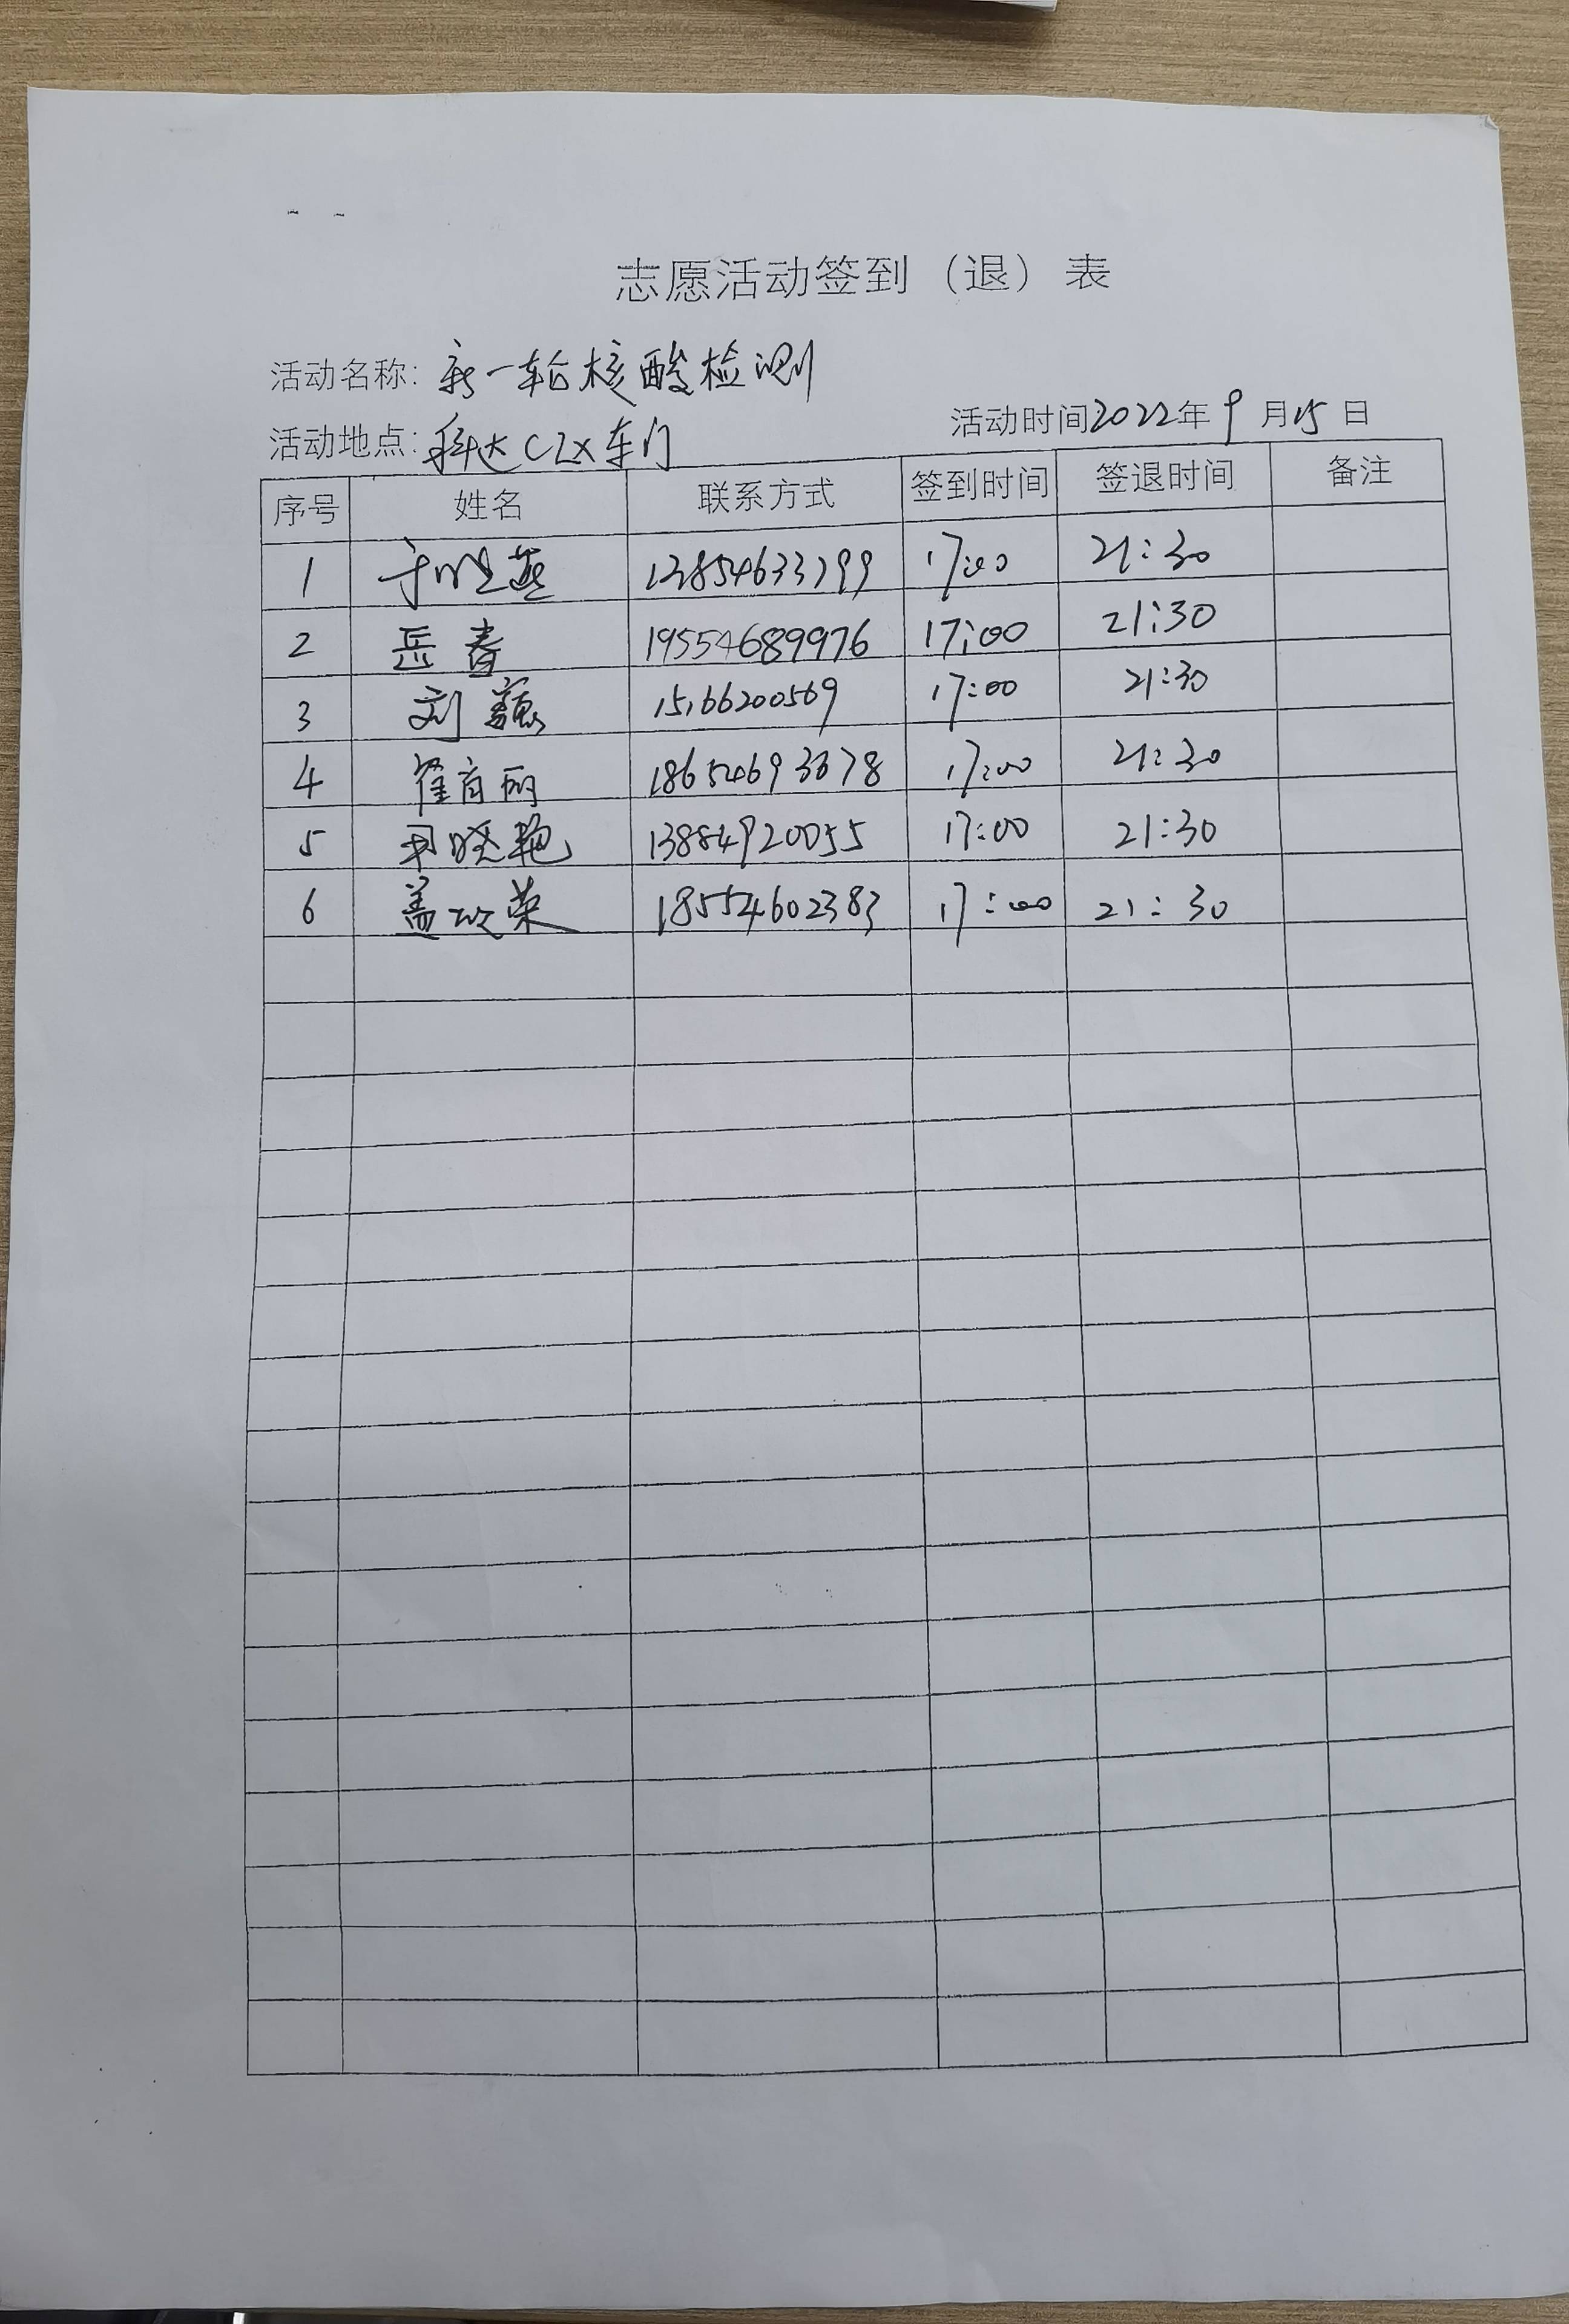 志愿活动签到（退）表
活动名称：新一轮核酸检测
活动地点：科达CZX东门 活动时间2022年9月15日
序号 姓名 联系方式 签到时间 签退时间 备注
1 13854633799 17:00 21:30
2 岳春 19554689976 17:00 21:30
3 刘 15166200569 17:00 21:30
4 翟育丽 18654693678 17:00 21:30
5 晓艳 13884920055 17:00 21:30
6 盖荣 18554602383 17:00 21:30